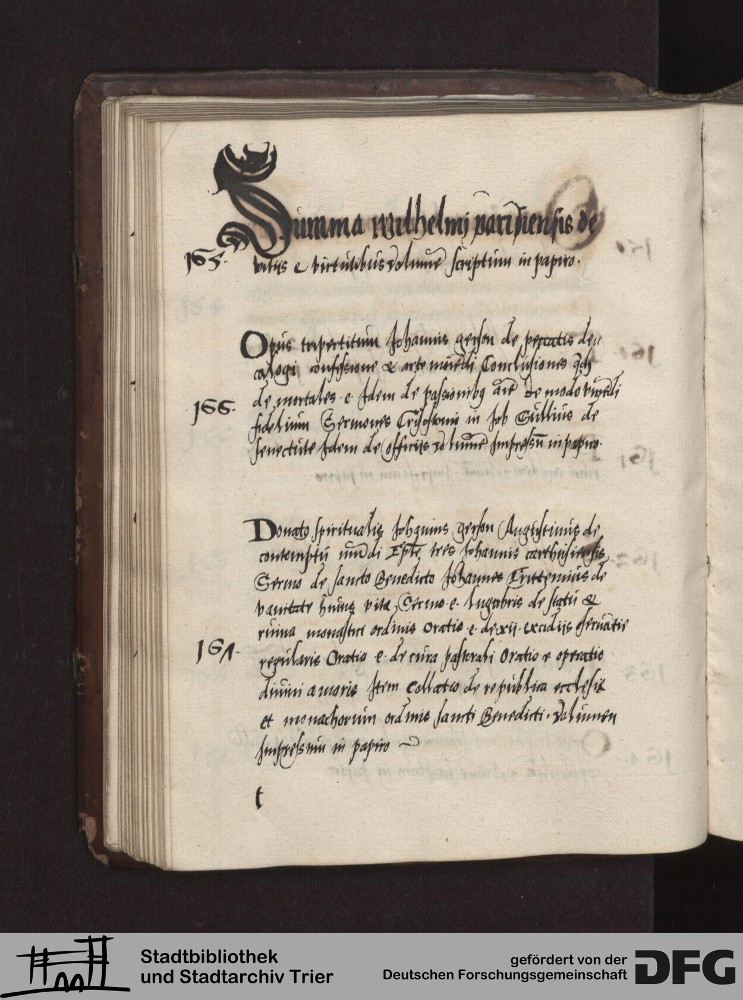 Summa wilhelmj parisiensis de
165. vitiis e virtutibus volume scriptum in papiro.
Opus tripertitum Johannis gerson de peccatis de
calogi confessione & arte moriendi Conclusiones
de mortales e Idem de passionibq aie de modo vivendi
166. fidelium Sermones Crisostomi in Job Tullius de
senectute Idem de officiis volume Impressu in papiro.
Donato spiritualis Johannis gerson Augustinus de
contemptu mudi Eple tres Johannis carthusiensis
Sermo de sancto Benedicto Johannes Trittemius de
vanitate huius vite Sermo e lugubris de statu &
ruina monastici ordinis oratio e de xii excidiis observatie
167. regularis Oratio e de cura pastorali oratio e operatio
divini amoris Item Collatio de republica ecclesie
et monachorum ordinis sancti Benedicti. volumen
Impressum in papiro
t
Stadtbibliothek
und Stadtarchiv Trier
gefördert von der
Deutschen Forschungsgemeinschaft
DFG